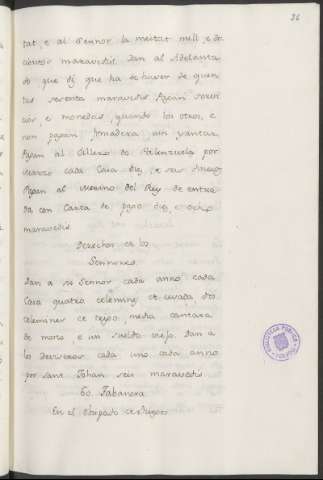 36
tat e al Sennor la meitat mill, e do
maravedis Dan al Adelanta
do que dis que ha de haver de quen
tas sesenta maravedis Pagan servi
cios e monedas quando los otros, e
non pagan fonsadera nin yantar,
Pagan al Cillero de Valenzuela por
Marzo cada Casa dies, e seis dineros
Pagan al Merino del Rey de entra
da con Carta de pago dies, e ocho
maravedis
Derechos de los
Sennores
Dan a su Sennor cada anno cada
Casa quatro celemines de cevada dos
celemines de trigo media cantara
de mosto e un sueldo viejo. Dan a
los deviseros cada uno cada anno
por Sant Johan seis maravedis
60. Tabanera
En el Obispado de Burgos
BIBLIOTECA PUBLICA